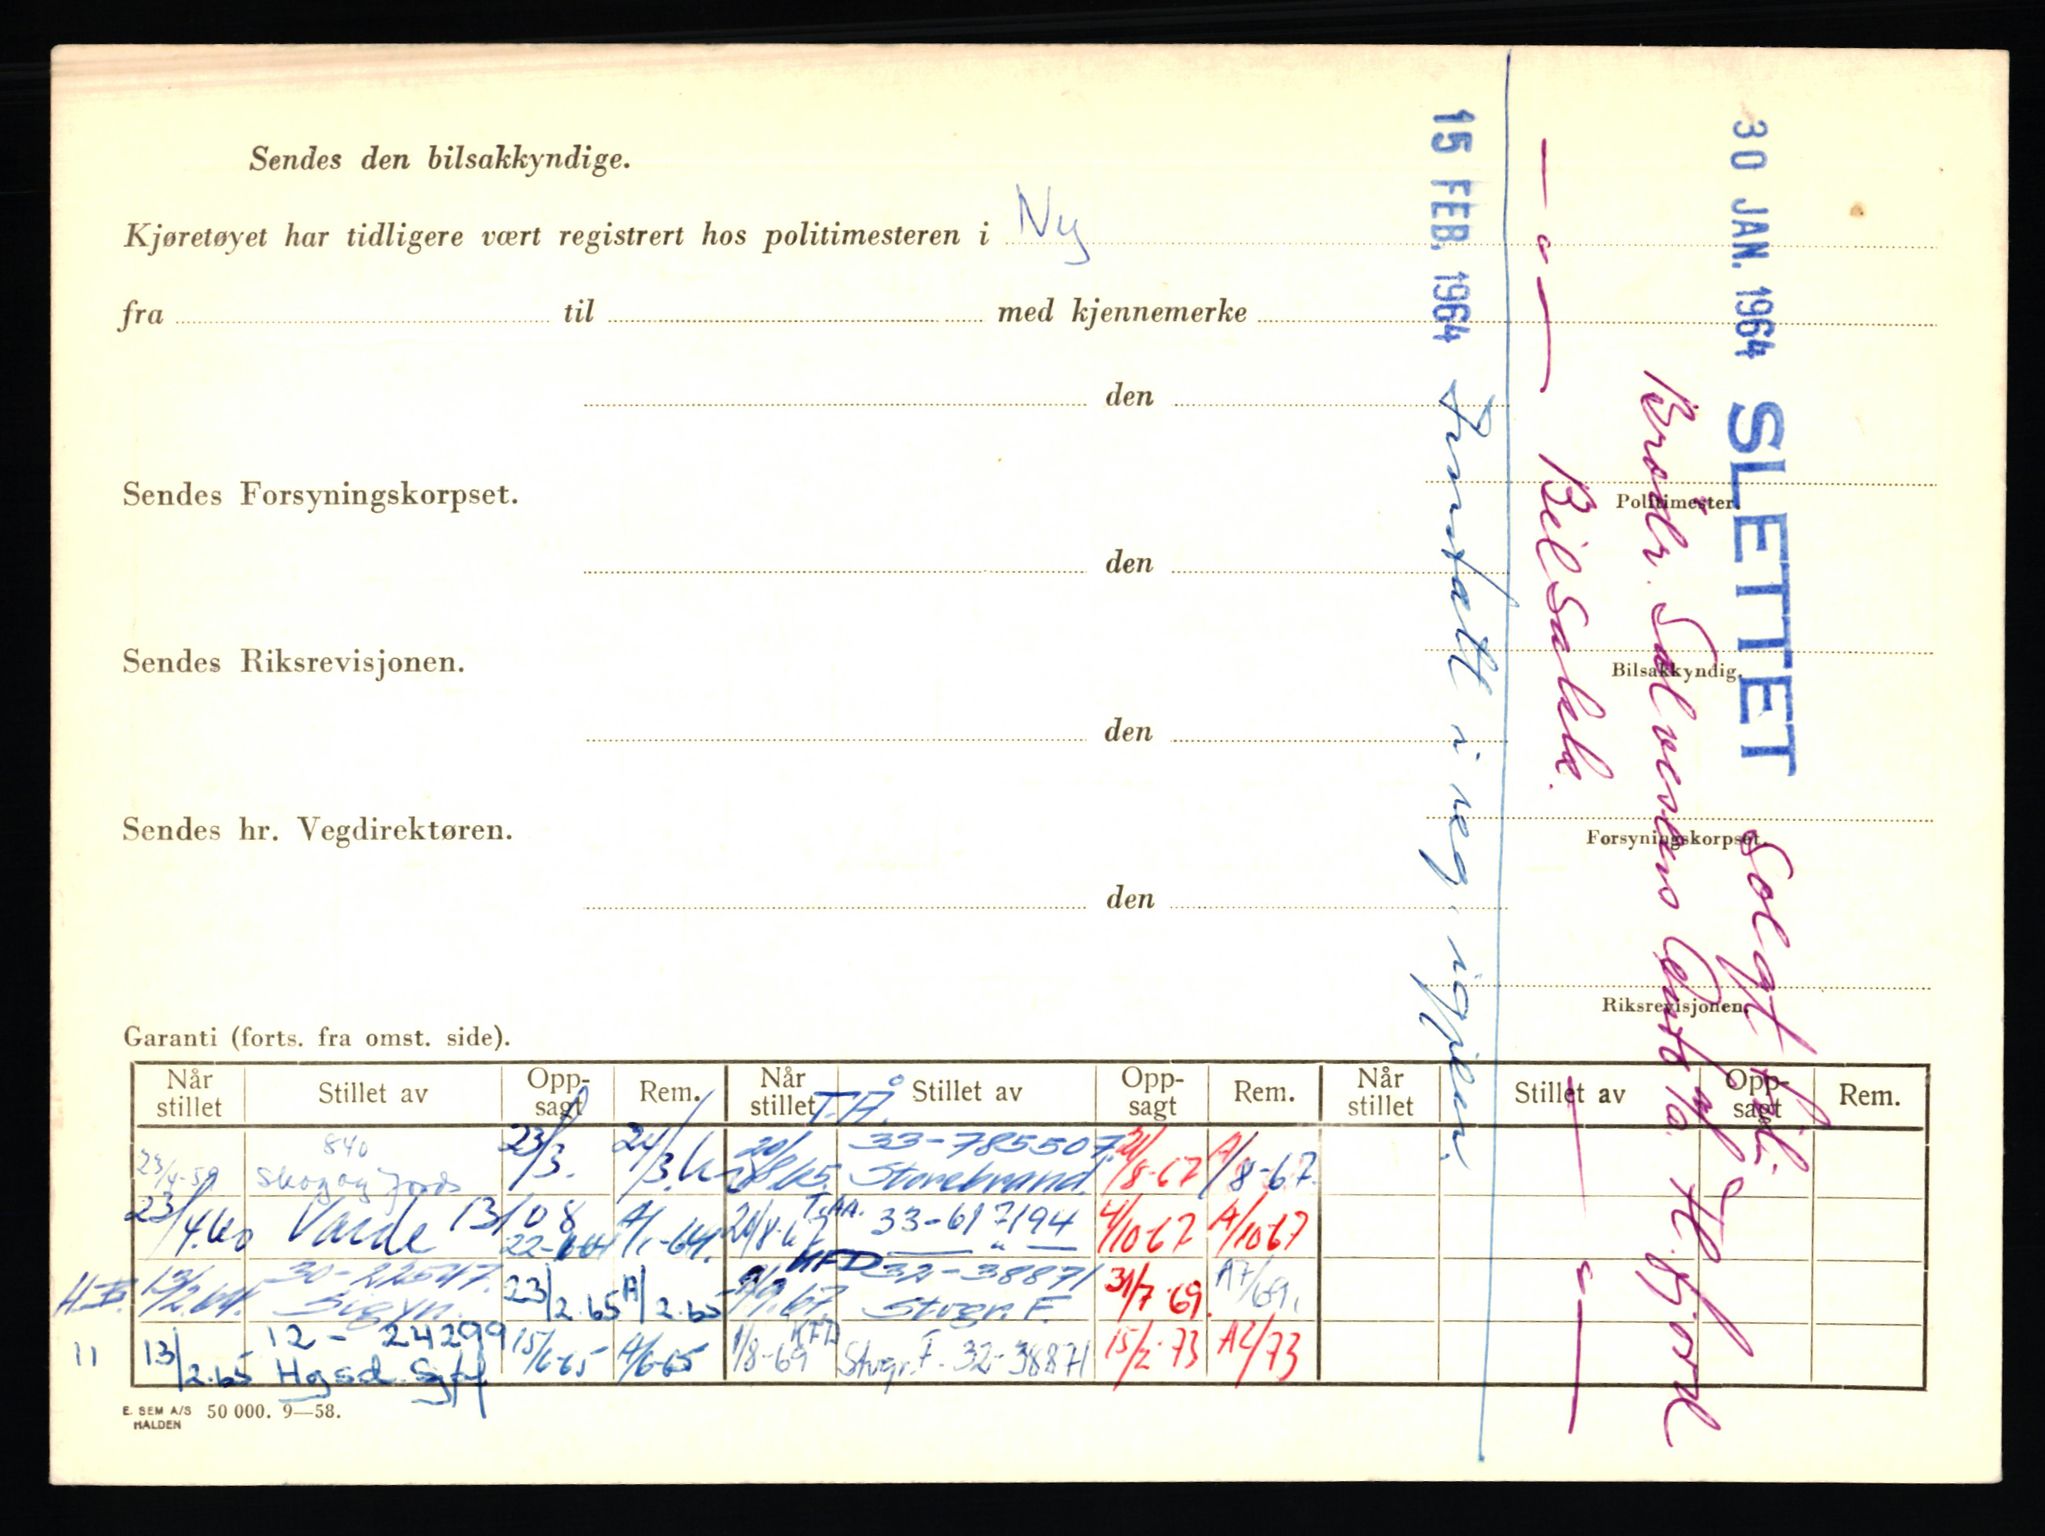 Sendes den bilsakkyndige.
Kjøretøyet har tidligere vært registrert hos politimesteren i Ny
fra til med kjennemerke
den
Politimester.
Sendes Forsyningskorpset.
den
Bilsakkyndig.
Sendes Riksrevisjonen.
den
Forsyningskorpset.
Sendes hr. Vegdirektøren.
den
Riksrevisjonen.
30 JAN. 1964 SLETTET Solgt til
Brødr. Salvesens Auto af H.fjord
— " — Bilsakk. — " —
15 FEB. 1964 Innstatt i reg. igjen.
Garanti (forts. fra omst. side).
Når stillet Stillet av Opp-sagt Rem. Når stillet Stillet av Opp-sagt Rem. Når stillet Stillet av Opp-sagt Rem.
840 T.Å. 33-785507
23/4-59 Skog og Jords 23/3. 24/3. 20/8.65. Storebrand 21/8-67 A/8-67.
23/4.60 Varde 13108 22-1-64 A/1-64. 21/8-67 T.AA. 33-617194 4/10-67 A/10-67
H.B. 13/2.64. 30-22547. Sigyn. 23/2.65 A/2.65 9/9.67. HFD 32-38871 Stvgr. F. 31/7.69. A7/69.
11 13/2.65 12 - 24299 15/6-65 A/6-65 1/8-69 HFD Stvgr. F. 32-38871 15/2-73 A2/73
E. SEM A/S HALDEN 50 000. 9—58.